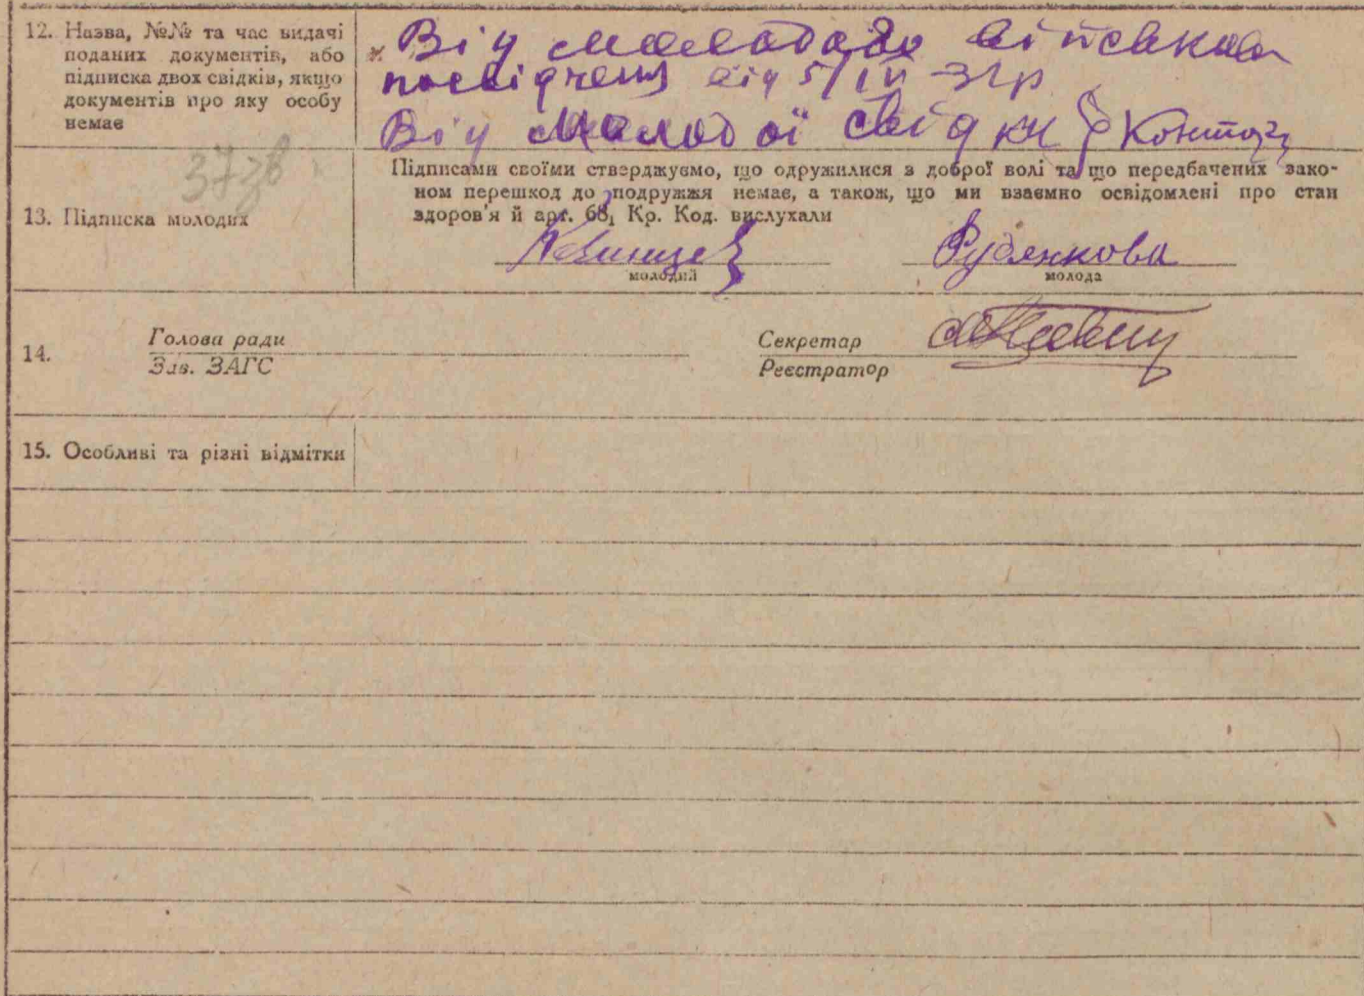 12. Назва, №№ та час видачі
поданих документів, або
підписка двох свідків, якщо
документів про яку особу
немає
Від молодого військова
посвідченя від 5/IV-31р
Від молодої свідки
37зв
13. Підписка молодих
Підписами своїми стверджуємо, що одружилися з доброї волі та що передбачених зако-
ном перешкод до подружжя немає, а також, що ми взаємно освідомлені про стан
здоров'я й арт. 68₁ Кр. Код. вислухали
Рубянкова
молодий молода
14.
Голова ради
Зав. ЗАГС
Секретар
Реєстратор
15. Особливі та різні відмітки